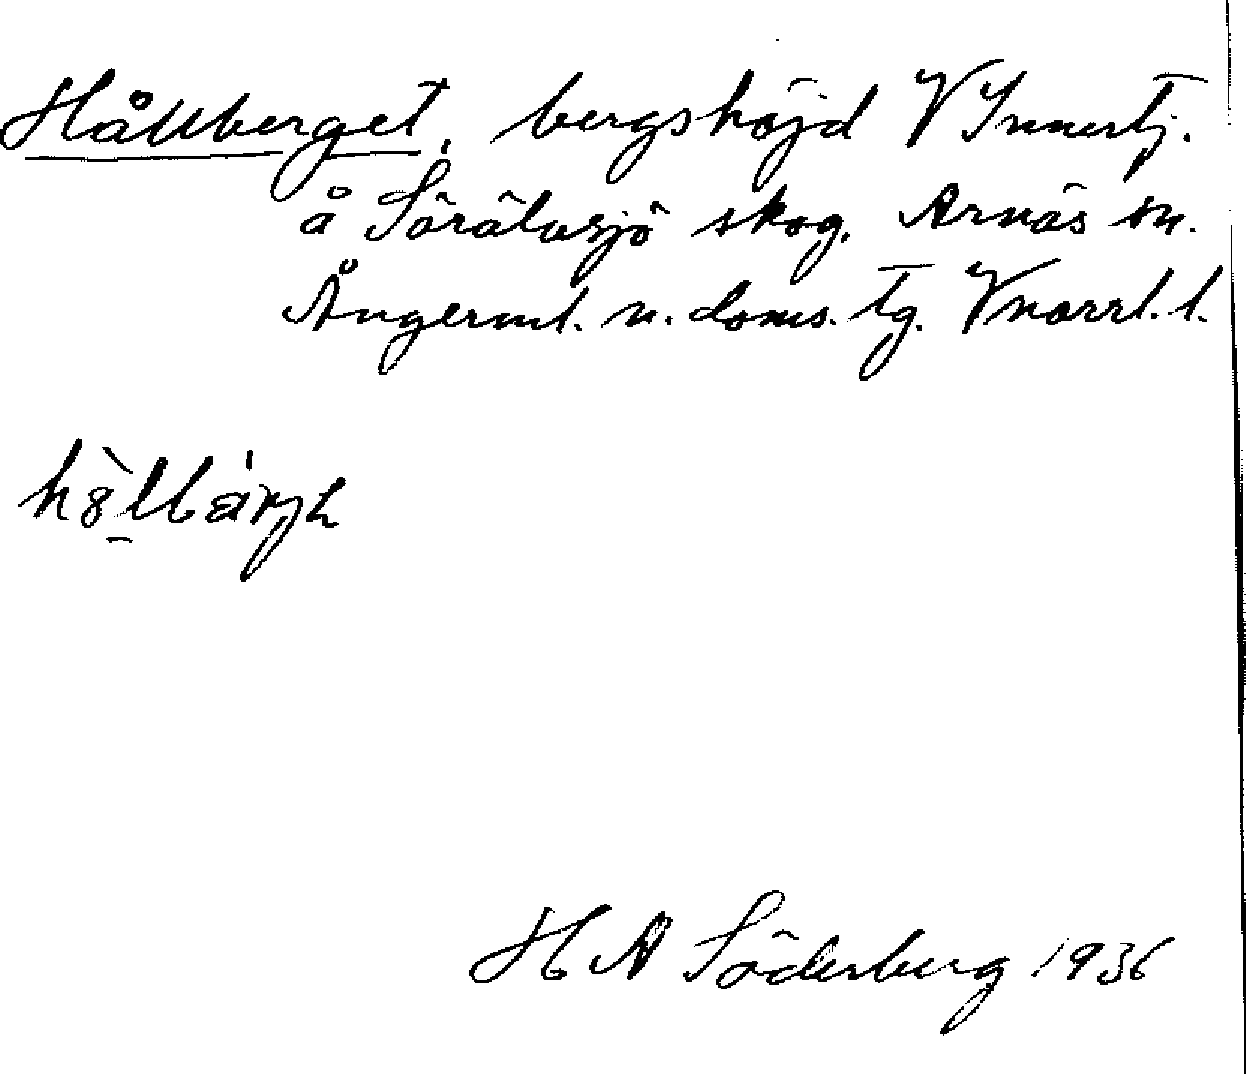 Hållberget, bergshöjd V Innertj.
å Sörälvsjö skog, Arnäs sn.
Ångerml. n. doms. tg. Vnorrl. l.
H A Söderberg 1936